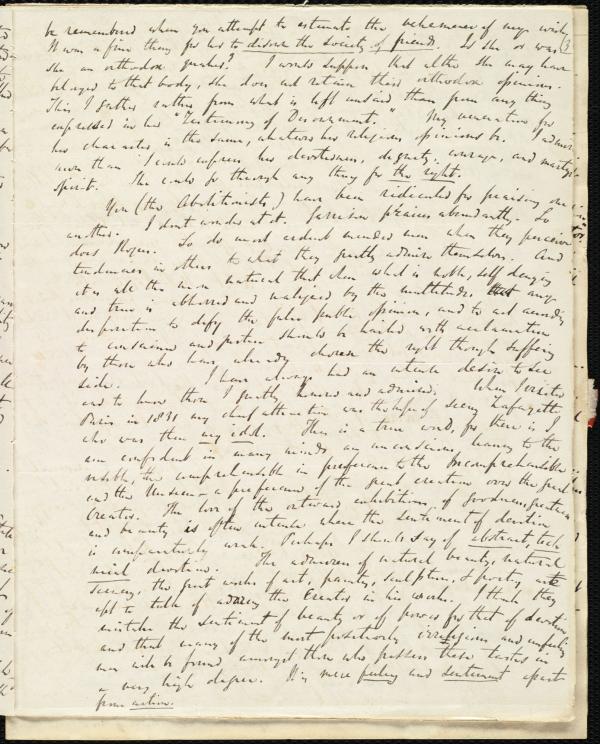 be remembered when you attempt to estimate the vehemence of my wish.
It was a fine thing for her to disown the Society of friends. Is she or was
she an orthodox quaker? I would suppose that altho she may have
belonged to that body, she does not retain their orthodox opinions.
This I gather rather from what is left unsaid than from any thing
expressed in her "Testimony of Disownment." My veneration for
her character is the same, whatever her religious opinions be. I admire
more than I could express her devotedness, dignity, courage, and martyr
spirit. She could go through any thing for the right.
You (the Abolitionists) have been ridiculed for praising one
another. I dont wonder at it. Garrison praises abundantly. So
does Rogers. So do most ardent minded men when they perceive
tendencies in others to what they greatly admire themselves. And
it is all the more natural that when what is noble, self denying
and true is abhorred and maligned by the multitude, that any
disposition to defy the false public opinion, and to act according
to conscience and justice should be hailed with acclamation
by those who have already chosen the right though suffering
side. I have always had an intense desire to see
and to know those I greatly honored and admired. When I visited
Paris in 1831 my chief attraction was the hope of seeing Lafayette
who was then my idol. This is a true word, for there is I
am confident in many minds an unconscious leaning to the
visible, the comprehensible in preference to the Incomprehensible
and the Unseen - a preference of the great creation over the great
Creator. The love of the outward exhibitions of goodness, greatness
and beauty is often intense where the sentiment of devotion
is comparatively weak. Perhaps I should say of abstract, tech
nical devotion. The admirers of natural beauty, natural
scenery, the great works of art, painting, sculpture, & poetry, are
apt to talk of adoring the Creator in his works. I think they
mistake the sentiment of beauty or of power for that of devotion
and that many of the most positively irreligious and unfeeling
men will be found amongst those who possess these tastes in
a very high degree. It is mere feeling and sentiment apart
from action.